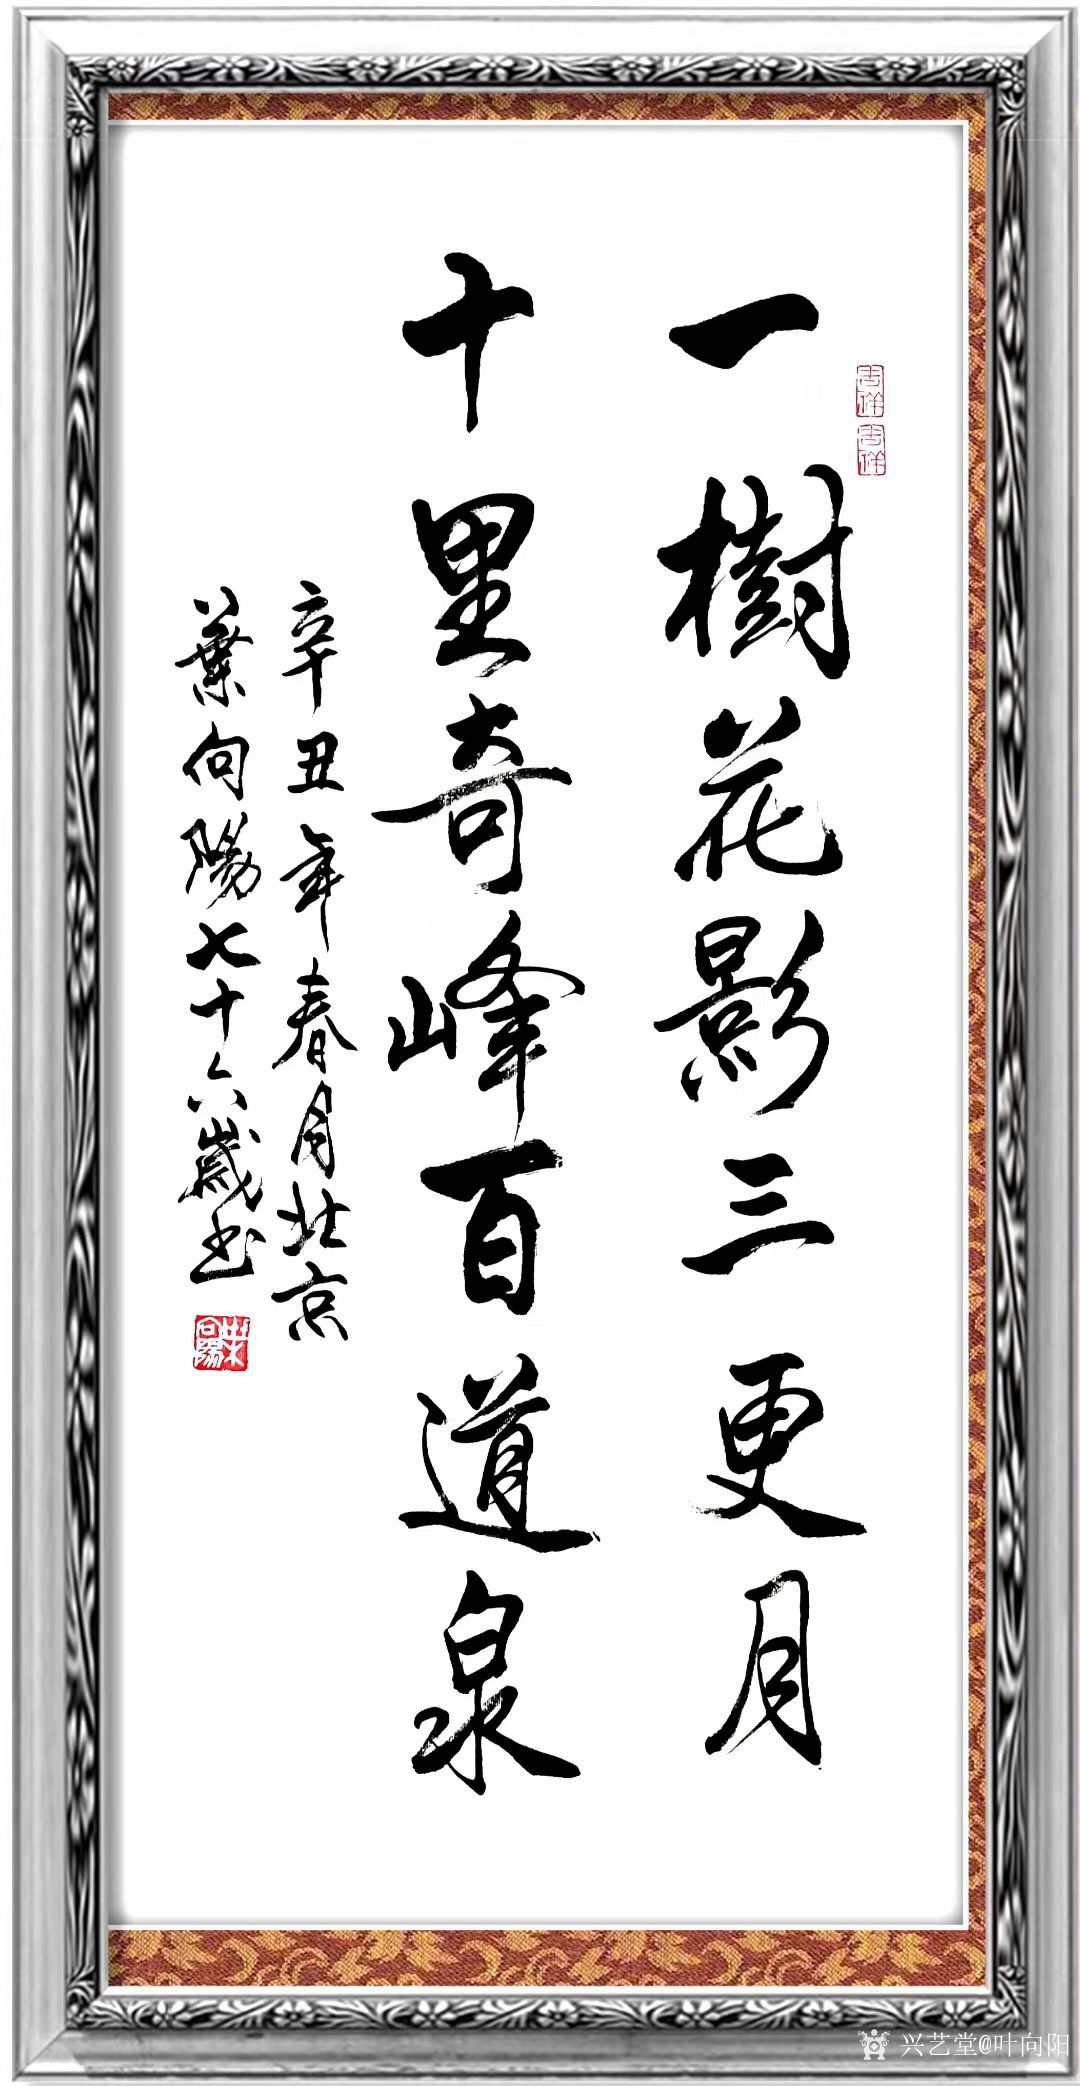 一樹花影三更月
十里奇峰百道泉
辛丑年春月北京
葉向陽七十六歲书
葉向陽
兴艺堂@叶向阳